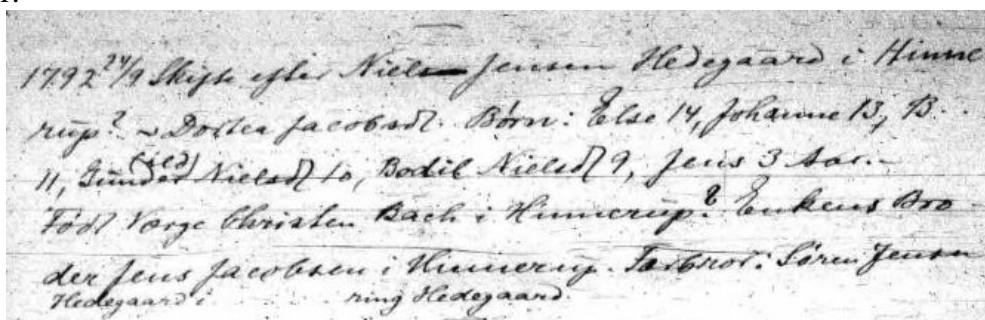 1792 24/9 Skifte efter Niels Jensen Hedegaard i Hinne
rup? ~ Dortea Jacobsdt. Børn: Else 14, Johanne 13, B.
11, Gunder (sed) Nielsdt 10, Bodil Nielsdt 9, Jens 3 Aar.-
Født Værge Christen Bach i Hinnerup? Enkens Bro
der Jens Jacobsen i Hinnerup. Farbror: Søren Jensen
Hedegaard i ring Hedegaard.